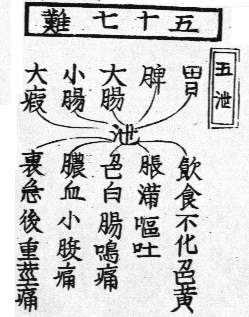 五十七難
五泄
胃
脾
大腸
小腸
大瘕
泄
飲食不化色黃
脹滿嘔吐
色白腸鳴痛
膿血小腹痛
裏急後重莖痛